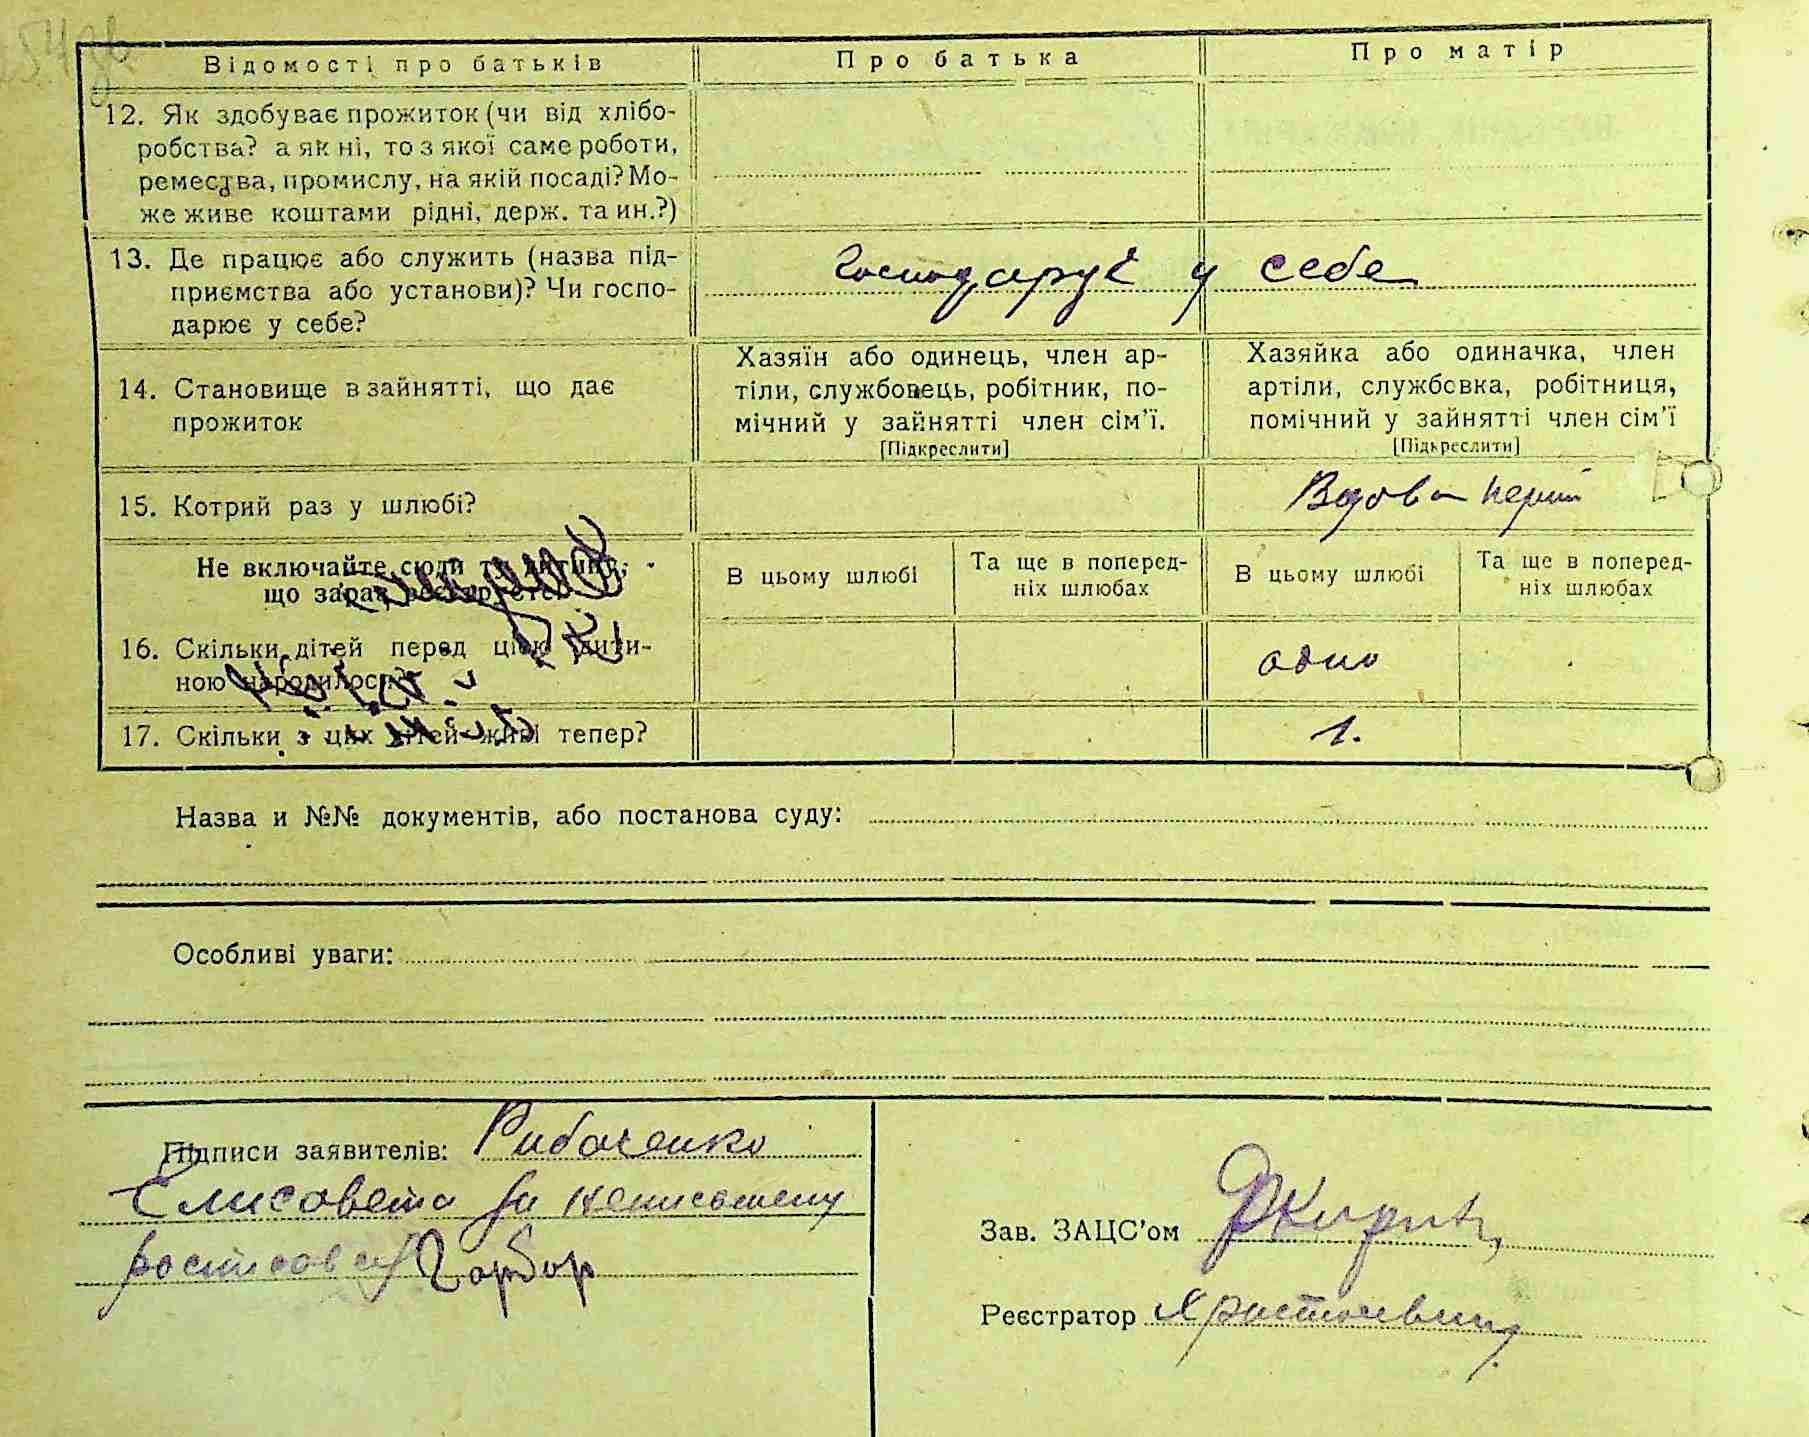 Відомості про батьків
Про батька
Про матір
12. Як здобуває прожиток (чи від хлібо-
робства? а як ні, то з якої саме роботи,
ремества, промислу, на якій посаді? Мо-
же живе коштами рідні, держ. та ин.?)
13. Де працює або служить (назва під-
приємства або установи)? Чи госпо-
дарює у себе?
Господарує у себе
14. Становище в зайнятті, що дає
прожиток
Хазяїн або одинець, член ар-
тіли, службовець, робітник, по-
мічний у зайнятті член сім'ї.
[Підкреслити]
Хазяйка або одиначка, член
артіли, службовка, робітниця,
помічний у зайнятті член сім'ї
[Підкреслити]
15. Котрий раз у шлюбі?
Вдова
Не включайте сюди ту дитину,
що зараз реєструєте
В цьому шлюбі
Та ще в поперед-
ніх шлюбах
В цьому шлюбі
Та ще в поперед-
ніх шлюбах
16. Скільки дітей перед цією дити-
ною народилось?
одно
17. Скільки з цих дітей живі тепер?
1.
Назва и №№ документів, або постанова суду:
Особливі уваги:
Підписи заявителів: Рибаченко
Єлисовета за неписьмену
росписовсь Гарбар
Зав. ЗАЦС'ом
Реєстратор